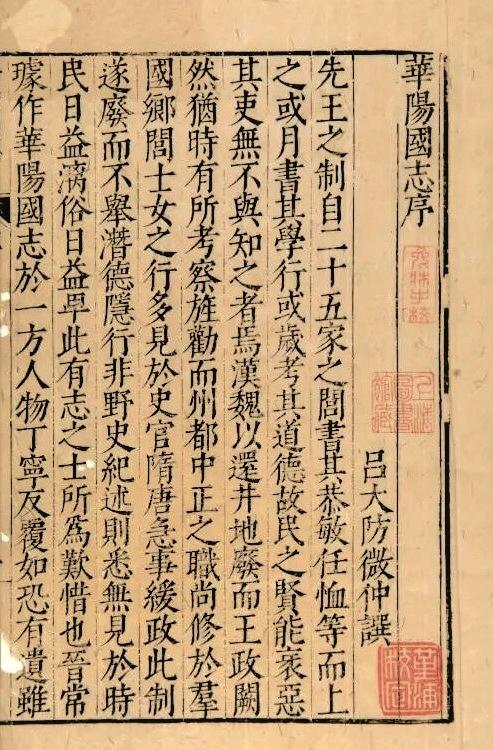 華陽國志序
呂大防微仲譔
先王之制自二十五家之閭書其恭敏任恤等而上
之或月書其學行或歲考其道德故民之賢能衺惡
其吏無不與知之者焉漢魏以還井地廢而王政闕
然猶時有所考察旌勸而州都中正之職尚修於羣
國鄉閭士女之行多見於史官隋唐急事緩政此制
遂廢而不舉潛德隱行非野史紀述則悉無見於時
民日益漓俗日益卑此有志之士所爲歎惜也晉常
璩作華陽國志於一方人物丁寧反覆如恐有遺雖
上海圖書館藏